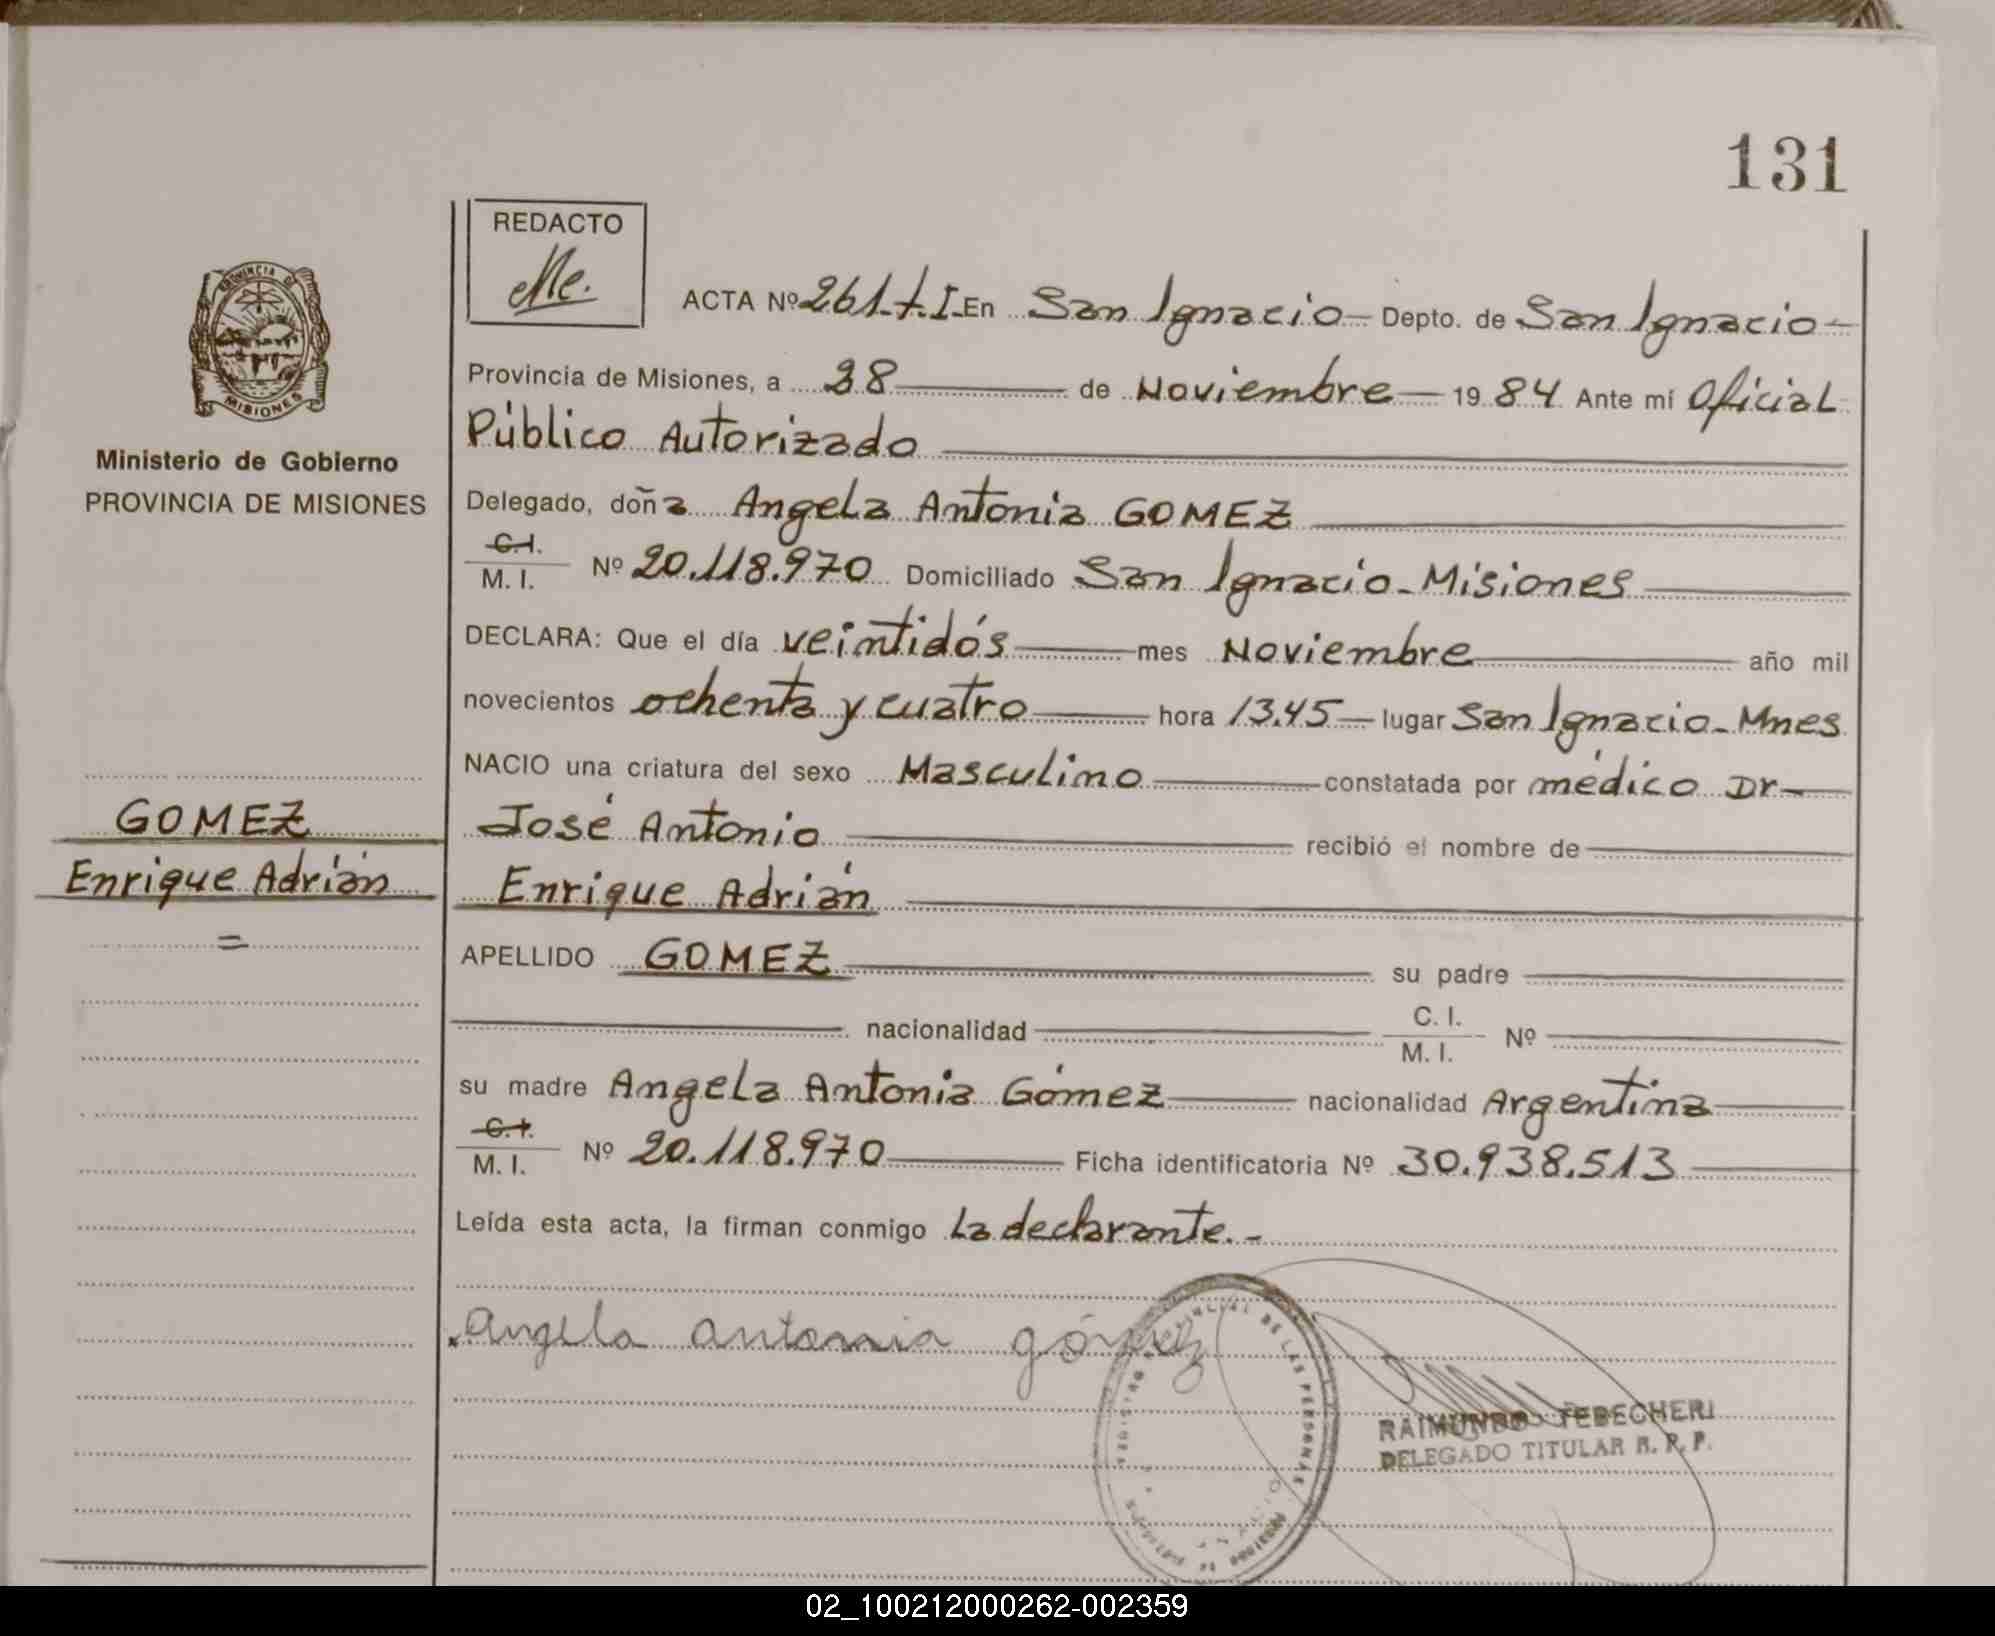 131
REDACTO
ACTA Nº 261.T.I. En San Ignacio - Depto. de San Ignacio -
PROVINCIA DE
MISIONES
Provincia de Misiones, a 28 de Noviembre - 1984 Ante mí Oficial
Público Autorizado
Ministerio de Gobierno
PROVINCIA DE MISIONES
Delegado, doña Angela Antonia GOMEZ
C.I.
M. I. Nº 20.118.970 Domiciliado San Ignacio - Misiones
DECLARA: Que el día veintidós mes Noviembre año mil
novecientos ochenta y cuatro hora 13.45 - lugar San Ignacio - Mnes
NACIO una criatura del sexo Masculino constatada por médico Dr -
José Antonio recibió el nombre de
GOMEZ
Enrique Adrián
=
Enrique Adrián
APELLIDO GOMEZ su padre
nacionalidad C. I.
M. I. Nº
su madre Angela Antonia Gómez nacionalidad Argentina
C.I.
M. I. Nº 20.118.970 Ficha identificatoria Nº 30.938.513
Leída esta acta, la firman conmigo La declarante. -
Angela antonia gómez
REGISTRO PROVINCIAL DE LAS PERSONAS
RAIMUNDO TEBECHERI
DELEGADO TITULAR R. P. P.
02_100212000262-002359